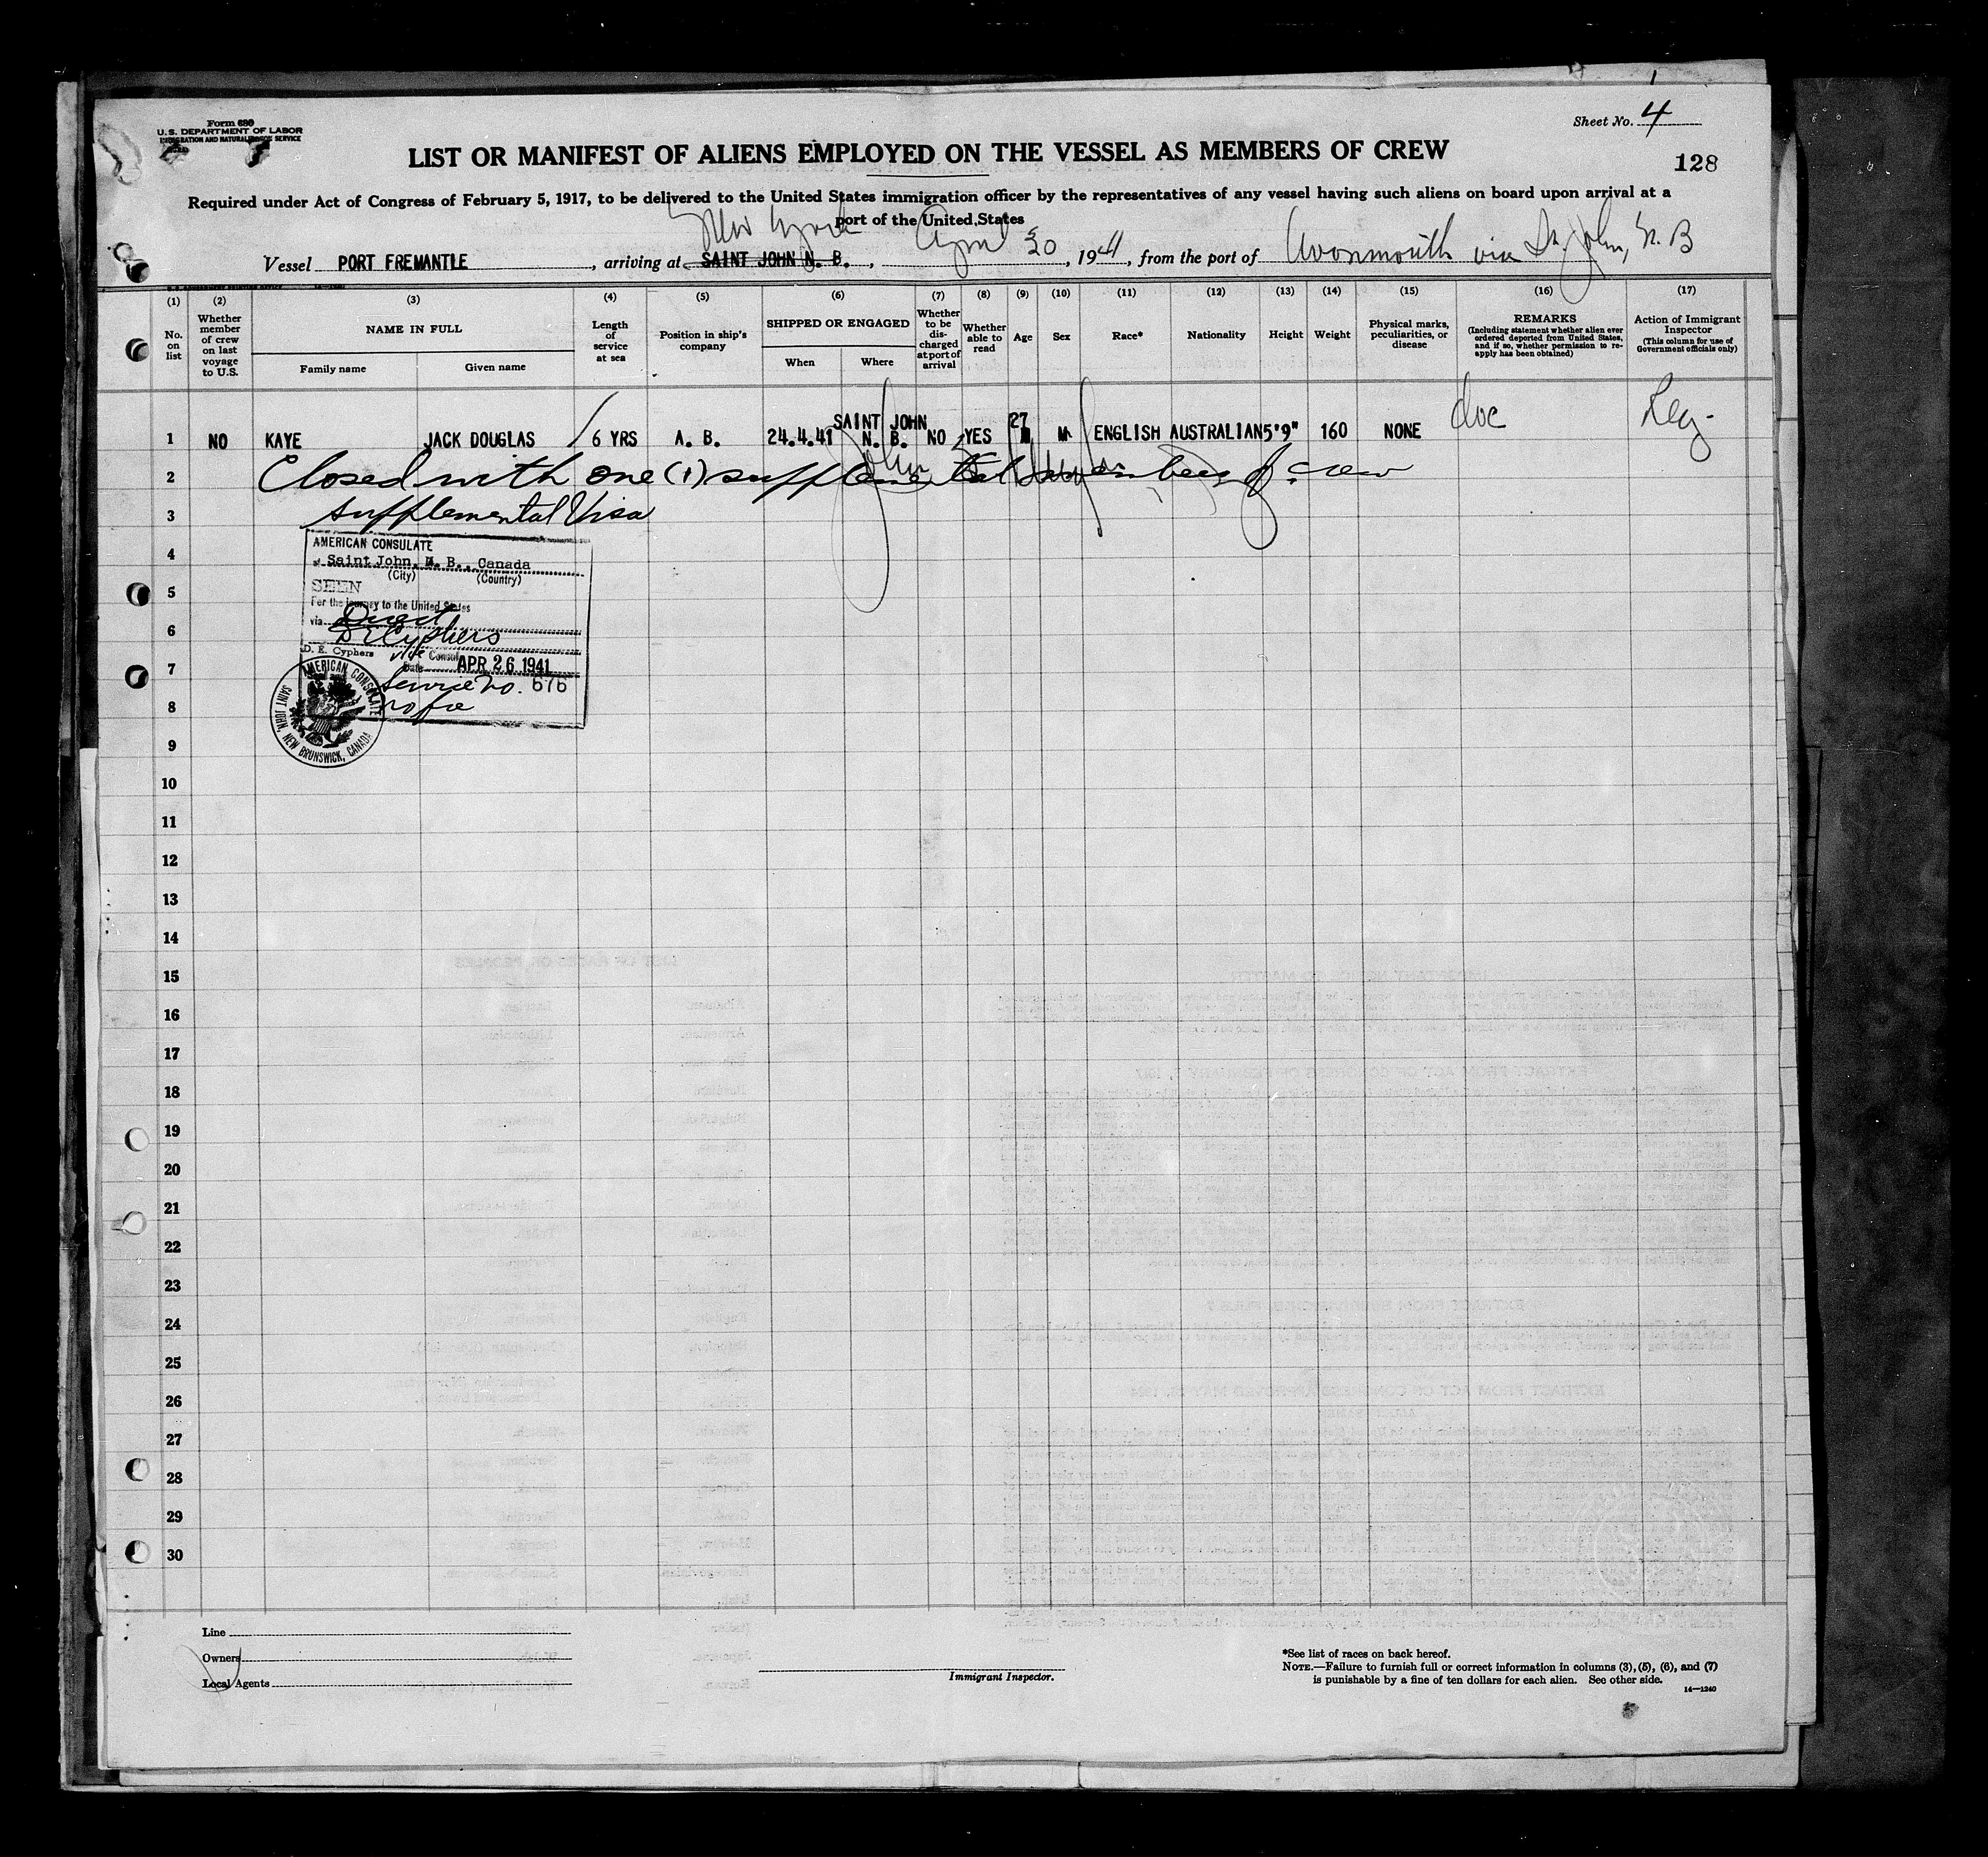 Form 680
U.S. DEPARTMENT OF LABOR
IMMIGRATION AND NATURALIZATION SERVICE
Sheet No. 4
LIST OR MANIFEST OF ALIENS EMPLOYED ON THE VESSEL AS MEMBERS OF CREW
128
Required under Act of Congress of February 5, 1917, to be delivered to the United States immigration officer by the representatives of any vessel having such aliens on board upon arrival at a
port of the United States
New York
Vessel PORT FREMANTLE, arriving at SAINT JOHN N. B., April 30, 1941, from the port of Avonmouth via St. John, N. B
(1) (2) (3) (4) (5) (6) (7) (8) (9) (10) (11) (12) (13) (14) (15) (16) (17)
No. on list
Whether member of crew on last voyage to U.S.
NAME IN FULL
Family name
Given name
Length of service at sea
Position in ship's company
SHIPPED OR ENGAGED
When
Where
Whether to be discharged at port of arrival
Whether able to read
Age
Sex
Race*
Nationality
Height
Weight
Physical marks, peculiarities, or disease
REMARKS
(Including statement whether alien ever ordered deported from United States, and if so, whether permission to reapply has been obtained)
Action of Immigrant Inspector
(This column for use of Government officials only)
1 NO KAYE JACK DOUGLAS 6 YRS A. B. 24.4.41 SAINT JOHN N. B. NO YES 27 M ENGLISH AUSTRALIAN 5'9" 160 NONE doc
2 Closed with one (1) supplemental members of crew
3 Supplemental Visa
4
5
6
7
8
9
10
11
12
13
14
15
16
17
18
19
20
21
22
23
24
25
26
27
28
29
30
AMERICAN CONSULATE
Saint John, N. B., Canada
(City) (Country)
SEEN
For the journey to the United States
via Direct
D E Cyphers
D. E. Cyphers Vice Consul
Date APR 26 1941
Service No. 676
no fee
AMERICAN CONSULATE
SAINT JOHN, NEW BRUNSWICK, CANADA
Line
Owners
Local Agents
Immigrant Inspector.
*See list of races on back hereof.
NOTE.—Failure to furnish full or correct information in columns (3), (5), (6), and (7)
is punishable by a fine of ten dollars for each alien. See other side.
14—1240